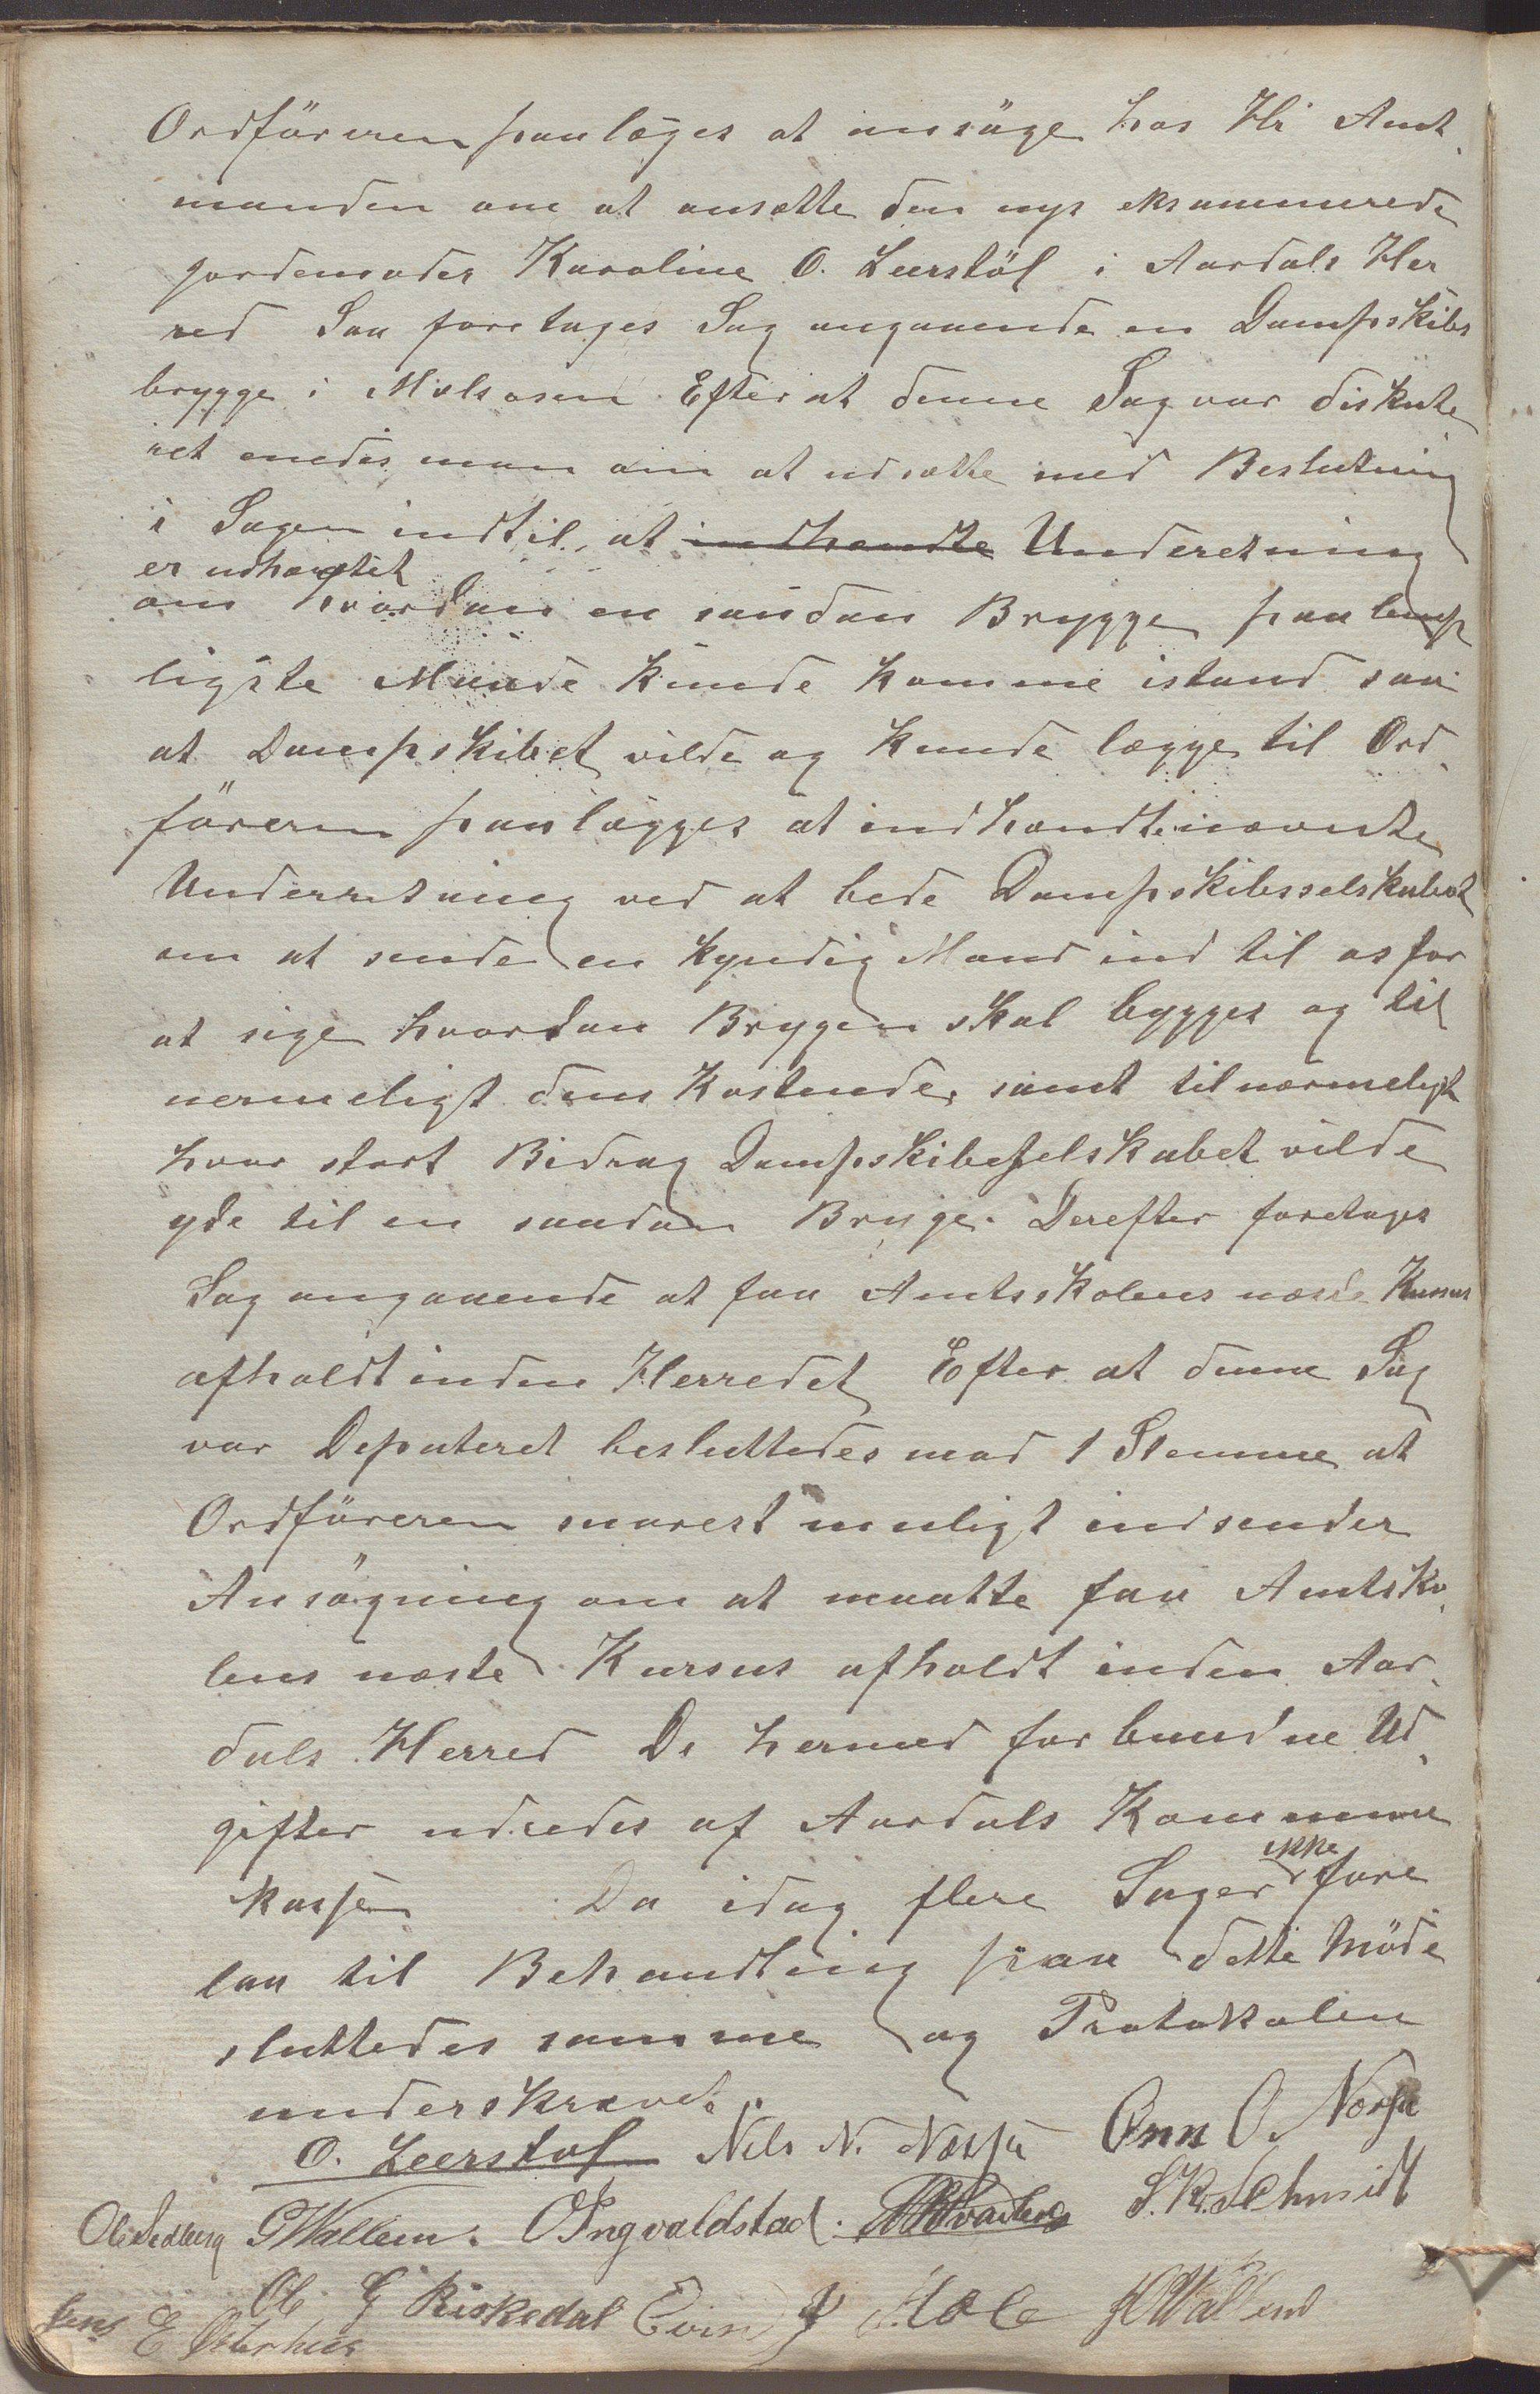 Ordføreren paalæges at ansøge hos Hr Amt-
manden om at ansætte den nys eksaminerede
jordemoder Karoline O. Leerstøl i Aardals Her
red Saa foretages Sag angaaende en Dampskibs
brygge i Mælsosen Efter at denne Sag var diskute
ret enedes man om at udsætte med Beslutning
i Sagen indtil, at indhændte Underetning
er udhæntet
om hvordan en saadan Brygge paa lemp
ligste Maade kunde komme istand saa
at Dampskibet vilde og kunde lægge til Ord-
føreren paalægges at indhændte nævnte
Underretning ved at bede Dampskibsselskabet
om at sende en kyndig Mand ind til os for
at sige hvordan Brygen skal bygges og til
nermeligt dens Kostende, samt tilnærmeligt
hvor stort Bidrag Dampskibeselskabet vilde
yde til en saadan Bryge. Derefter foretages
Sag angaaende at faa Amtsskolens næste Kursus
afholdt inden Herredet Efter at denne Sag
var Deputeret besluttedes mod 1 Stemme at
Ordføreren snarest muligt indsender
Ansøgning om at maatte faa Amtsko-
lens næste Kursus afholdt inden Aar-
dals Herred De hermed forbundne Ud-
gifter udredes af Aardals Kommune
kasse Da idag flere Sager ikke fore
laa til Behandling paa dette Møde
sluttedes samme og Protokolen
underskrevet.
O. Leerstøl Nils N. Næsse Onn O. Næsse
Ole Sedberg G Wallem. O Ingvaldstad. S. K. Schmidt
Ole G Riskedal Evin J Hole
Jens E Østerhus